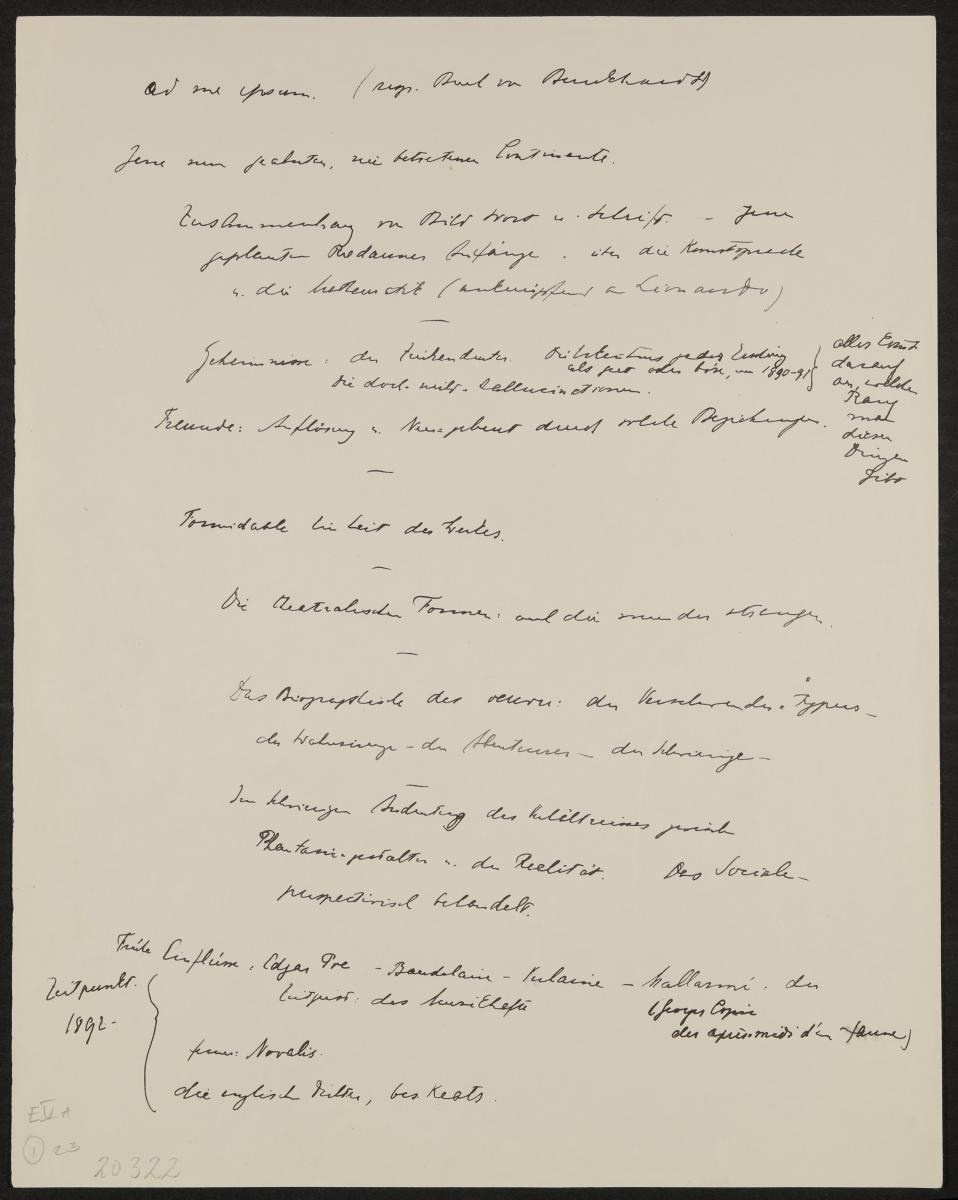 ad me ipsum. (resp. Brief an Burckhardt)
Jene nur geahnten, nie betretenen Continente.
Zusammenhang von Bild Wort u. Schrift. – Jene
geplanten Rodauner Anfänge. über die Kunstsprache
u. die (anknüpfend an Lionardo)
—
Geheimnisse: der jeder
als gut oder böse, um 1890-91
die Hallucinationen.
alles kommt
darauf
an, welchen
Rang
man
diesen
Dingen
gibt
Freunde: Auflösung u. Neugeburt durch solche Beziehungen.
—
Formidable Einheit des Werkes.
—
Die theatralischen Formen: und die strengen.
—
Das Biographische des oeuvre: der Verschwender-Typus –
der Wahnsinnige – der Abenteurer – der Schwierige –
—
Im Schwierigen Andeutung des Verhältnisses zwischen
Phantasiegestalten u. der Realität. Das Sociale –
perspectivisch behandelt.
Zeitpunkt.
1892 –
Frühe Einflüsse: Edgar Poe – Baudelaire – Verlaine – Mallarmé. der
Zeitpunkt: des
(Georges Copie
des après-midi d'un faune)
ferner: Novalis.
die englischen Dichter, bes Keats.
E V A
1 23
20322